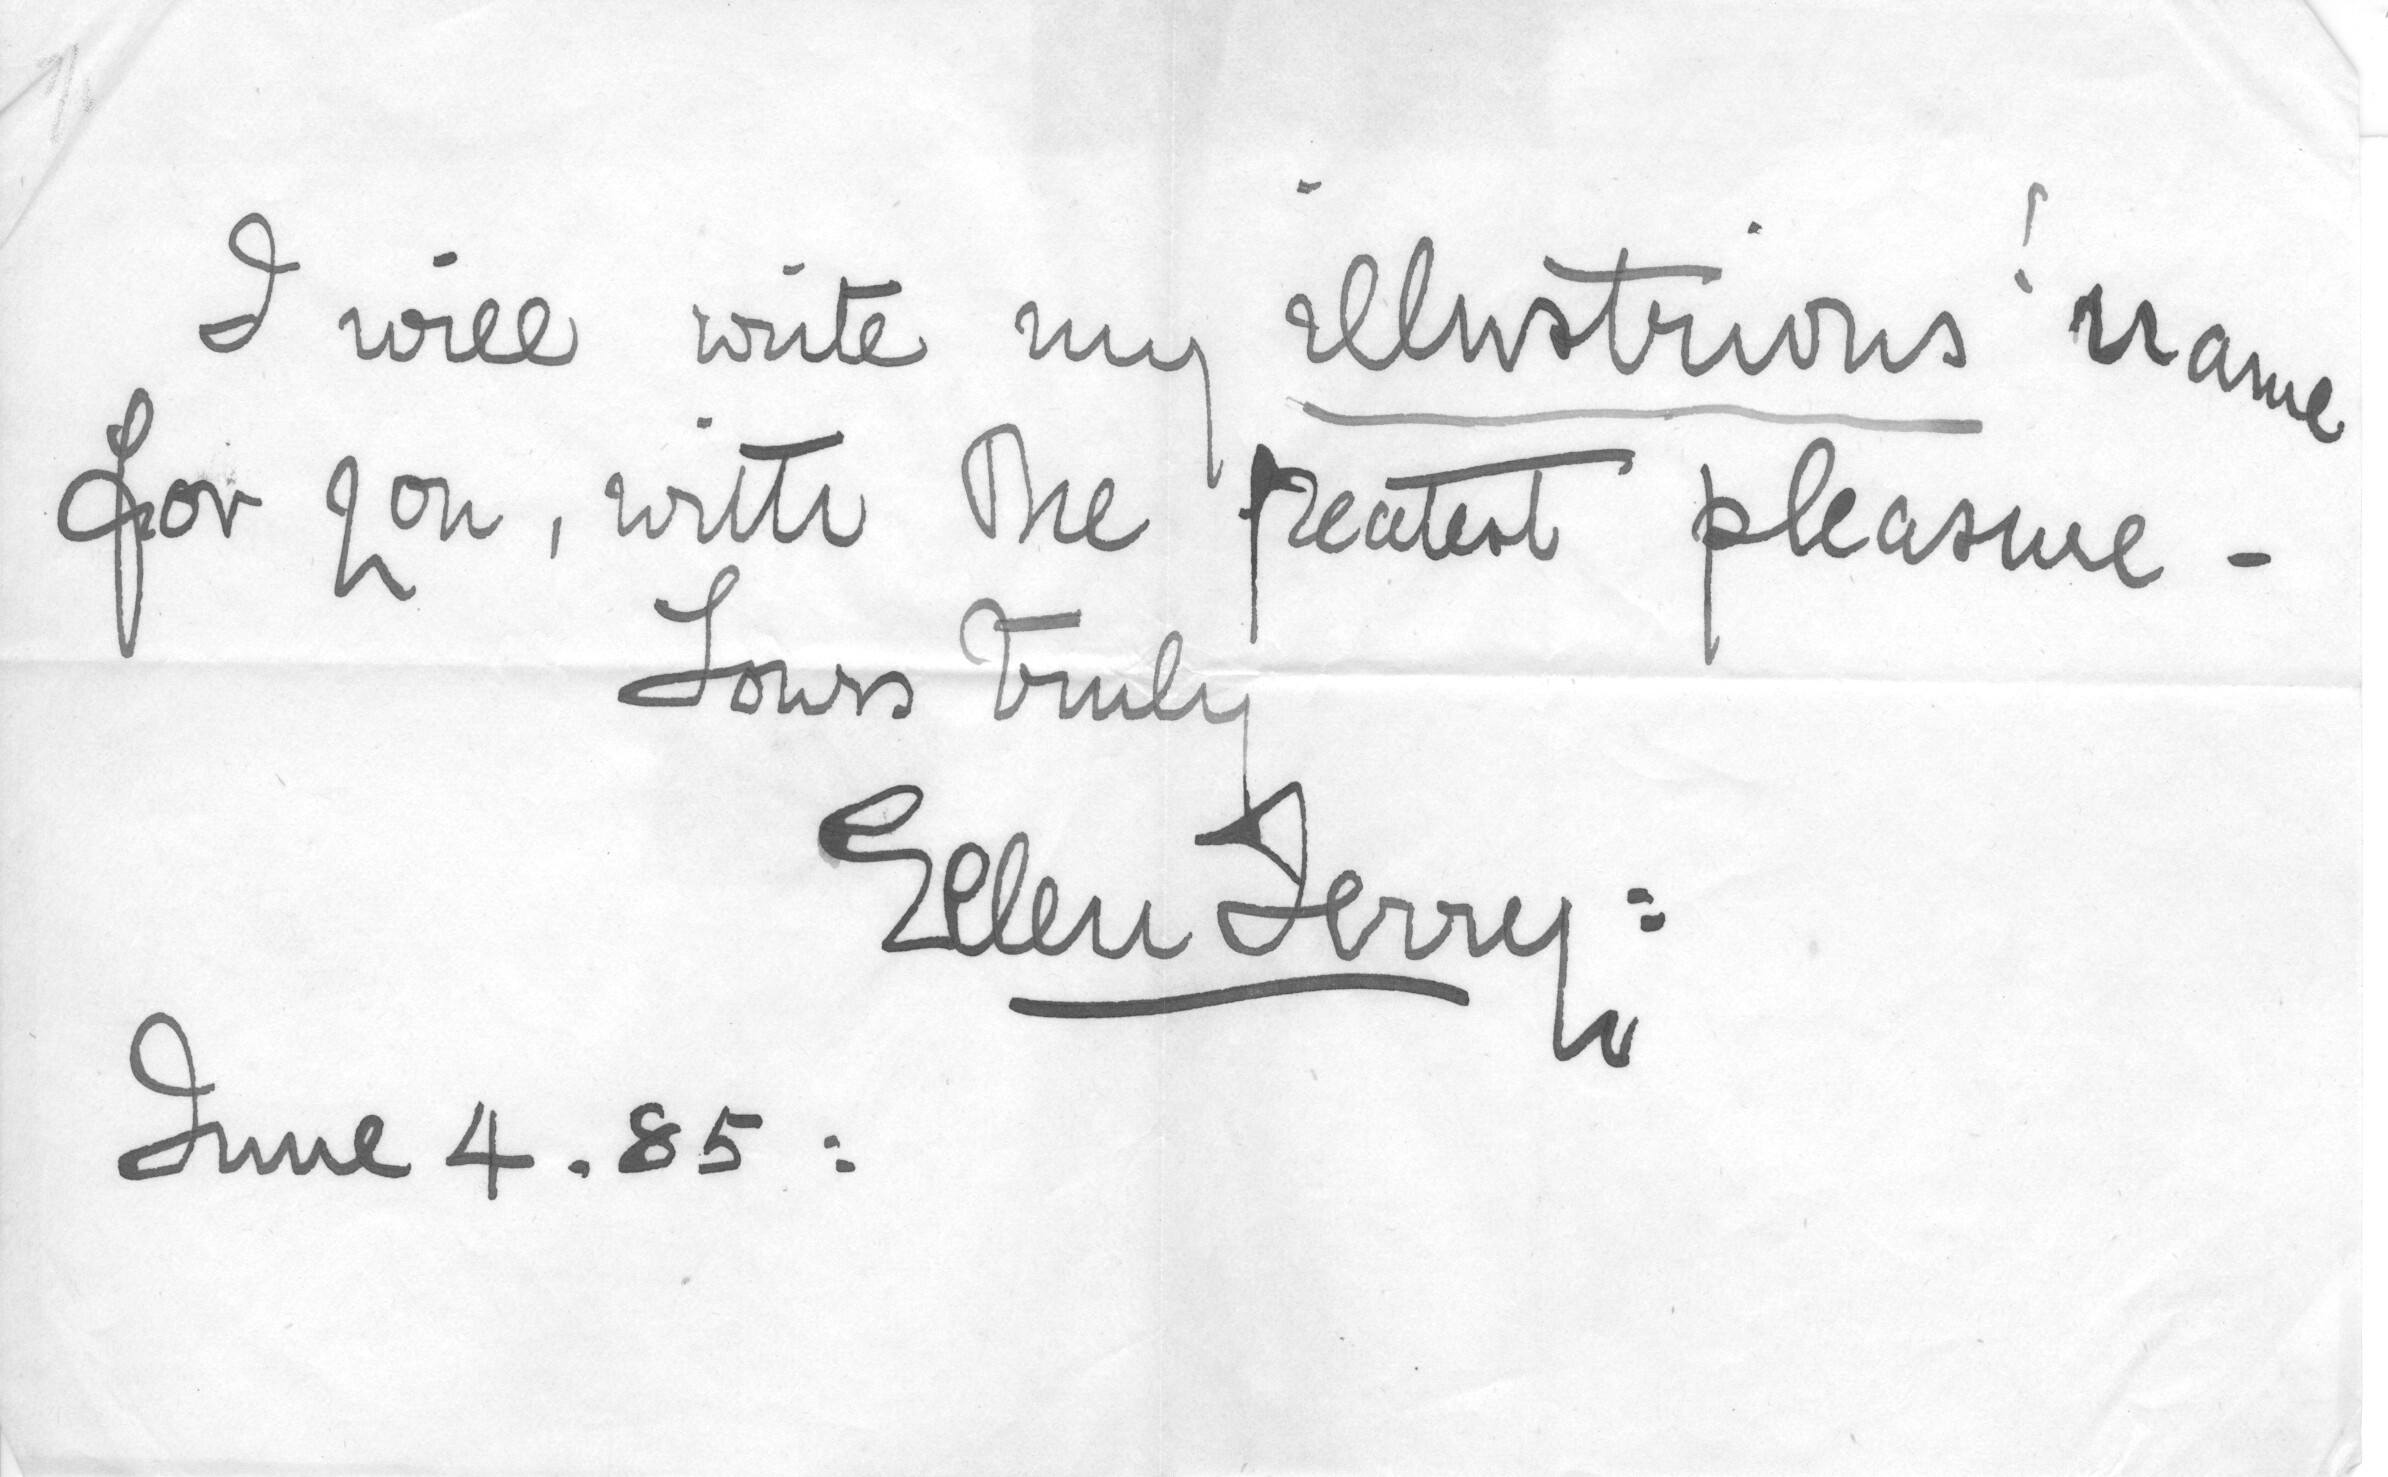 I will write my illustrious! name
for you, with the greatest pleasure -
Yours Truly
Ellen Terry:
June 4. 85: